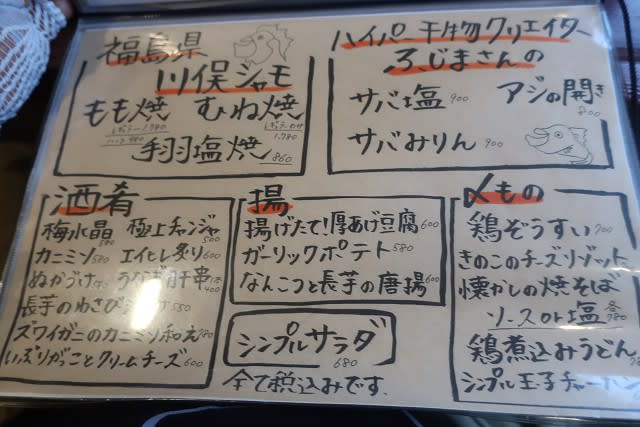 福島県
川俣シャモ
もも焼 むね焼
レギュラー1,780
ハーフ980
1,780
手羽塩焼 860
ハイパー干物クリエイター
ふじまさんの
サバ塩 900 アジの開き 800
サバみりん 900
酒肴
梅水晶 580 極上チャンジャ 500
カニミソ 580 エイヒレ炙り 600
ぬかづけ うなぎ肝串 400
長芋のわさび 550
ズワイガニのカニミソ和え 780
いぶりがっことクリームチーズ 600
揚
揚げたて!厚あげ豆腐 600
ガーリックポテト 580
なんこつと長芋の唐揚 600
シンプルサラダ
680
全て税込みです.
〆もの
鶏ぞうすい 700
きのこのチーズリゾット
懐かしの焼そば
ソースor塩 各780
鶏煮込みうどん
シンプル玉子チャーハン